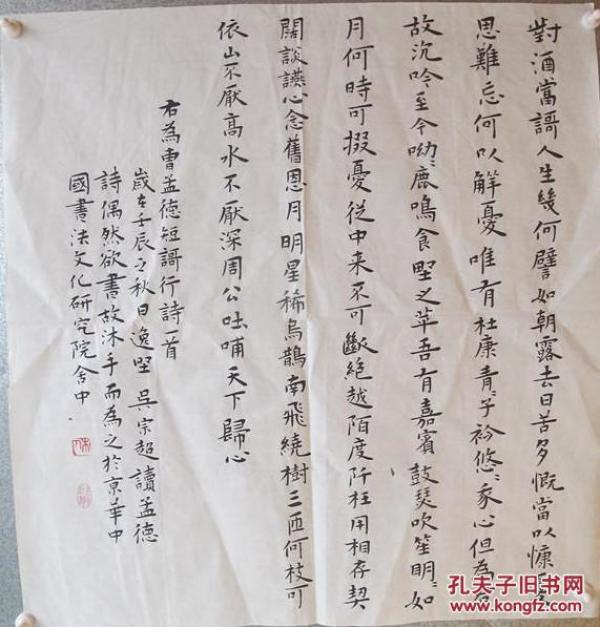 對酒當謌人生幾何譬如朝露去日苦多慨當以慷
思難忘何以解憂唯有杜康青〻子衿悠〻我心但為君
故沉吟至今呦〻鹿鳴食野之苹吾有嘉賓鼓瑟吹笙明〻如
月何時可掇憂從中来不可斷絕越陌度阡枉用相存契
闊談讌心念舊恩月明星稀烏鵲南飛繞樹三匝何枝可
依山不厭高水不厭深周公吐哺天下歸心
右為曹孟德短謌行詩一首
歲在壬辰之秋日逸堅吳宗超讀孟德
詩偶然欲書故沐手而為之於京華中
國書法文化研究院舍中
孔夫子旧书网
www.kongfz.com